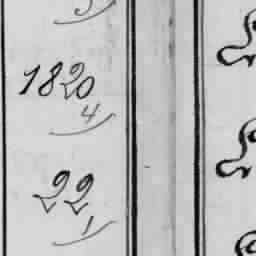 5
1820
4
22
1